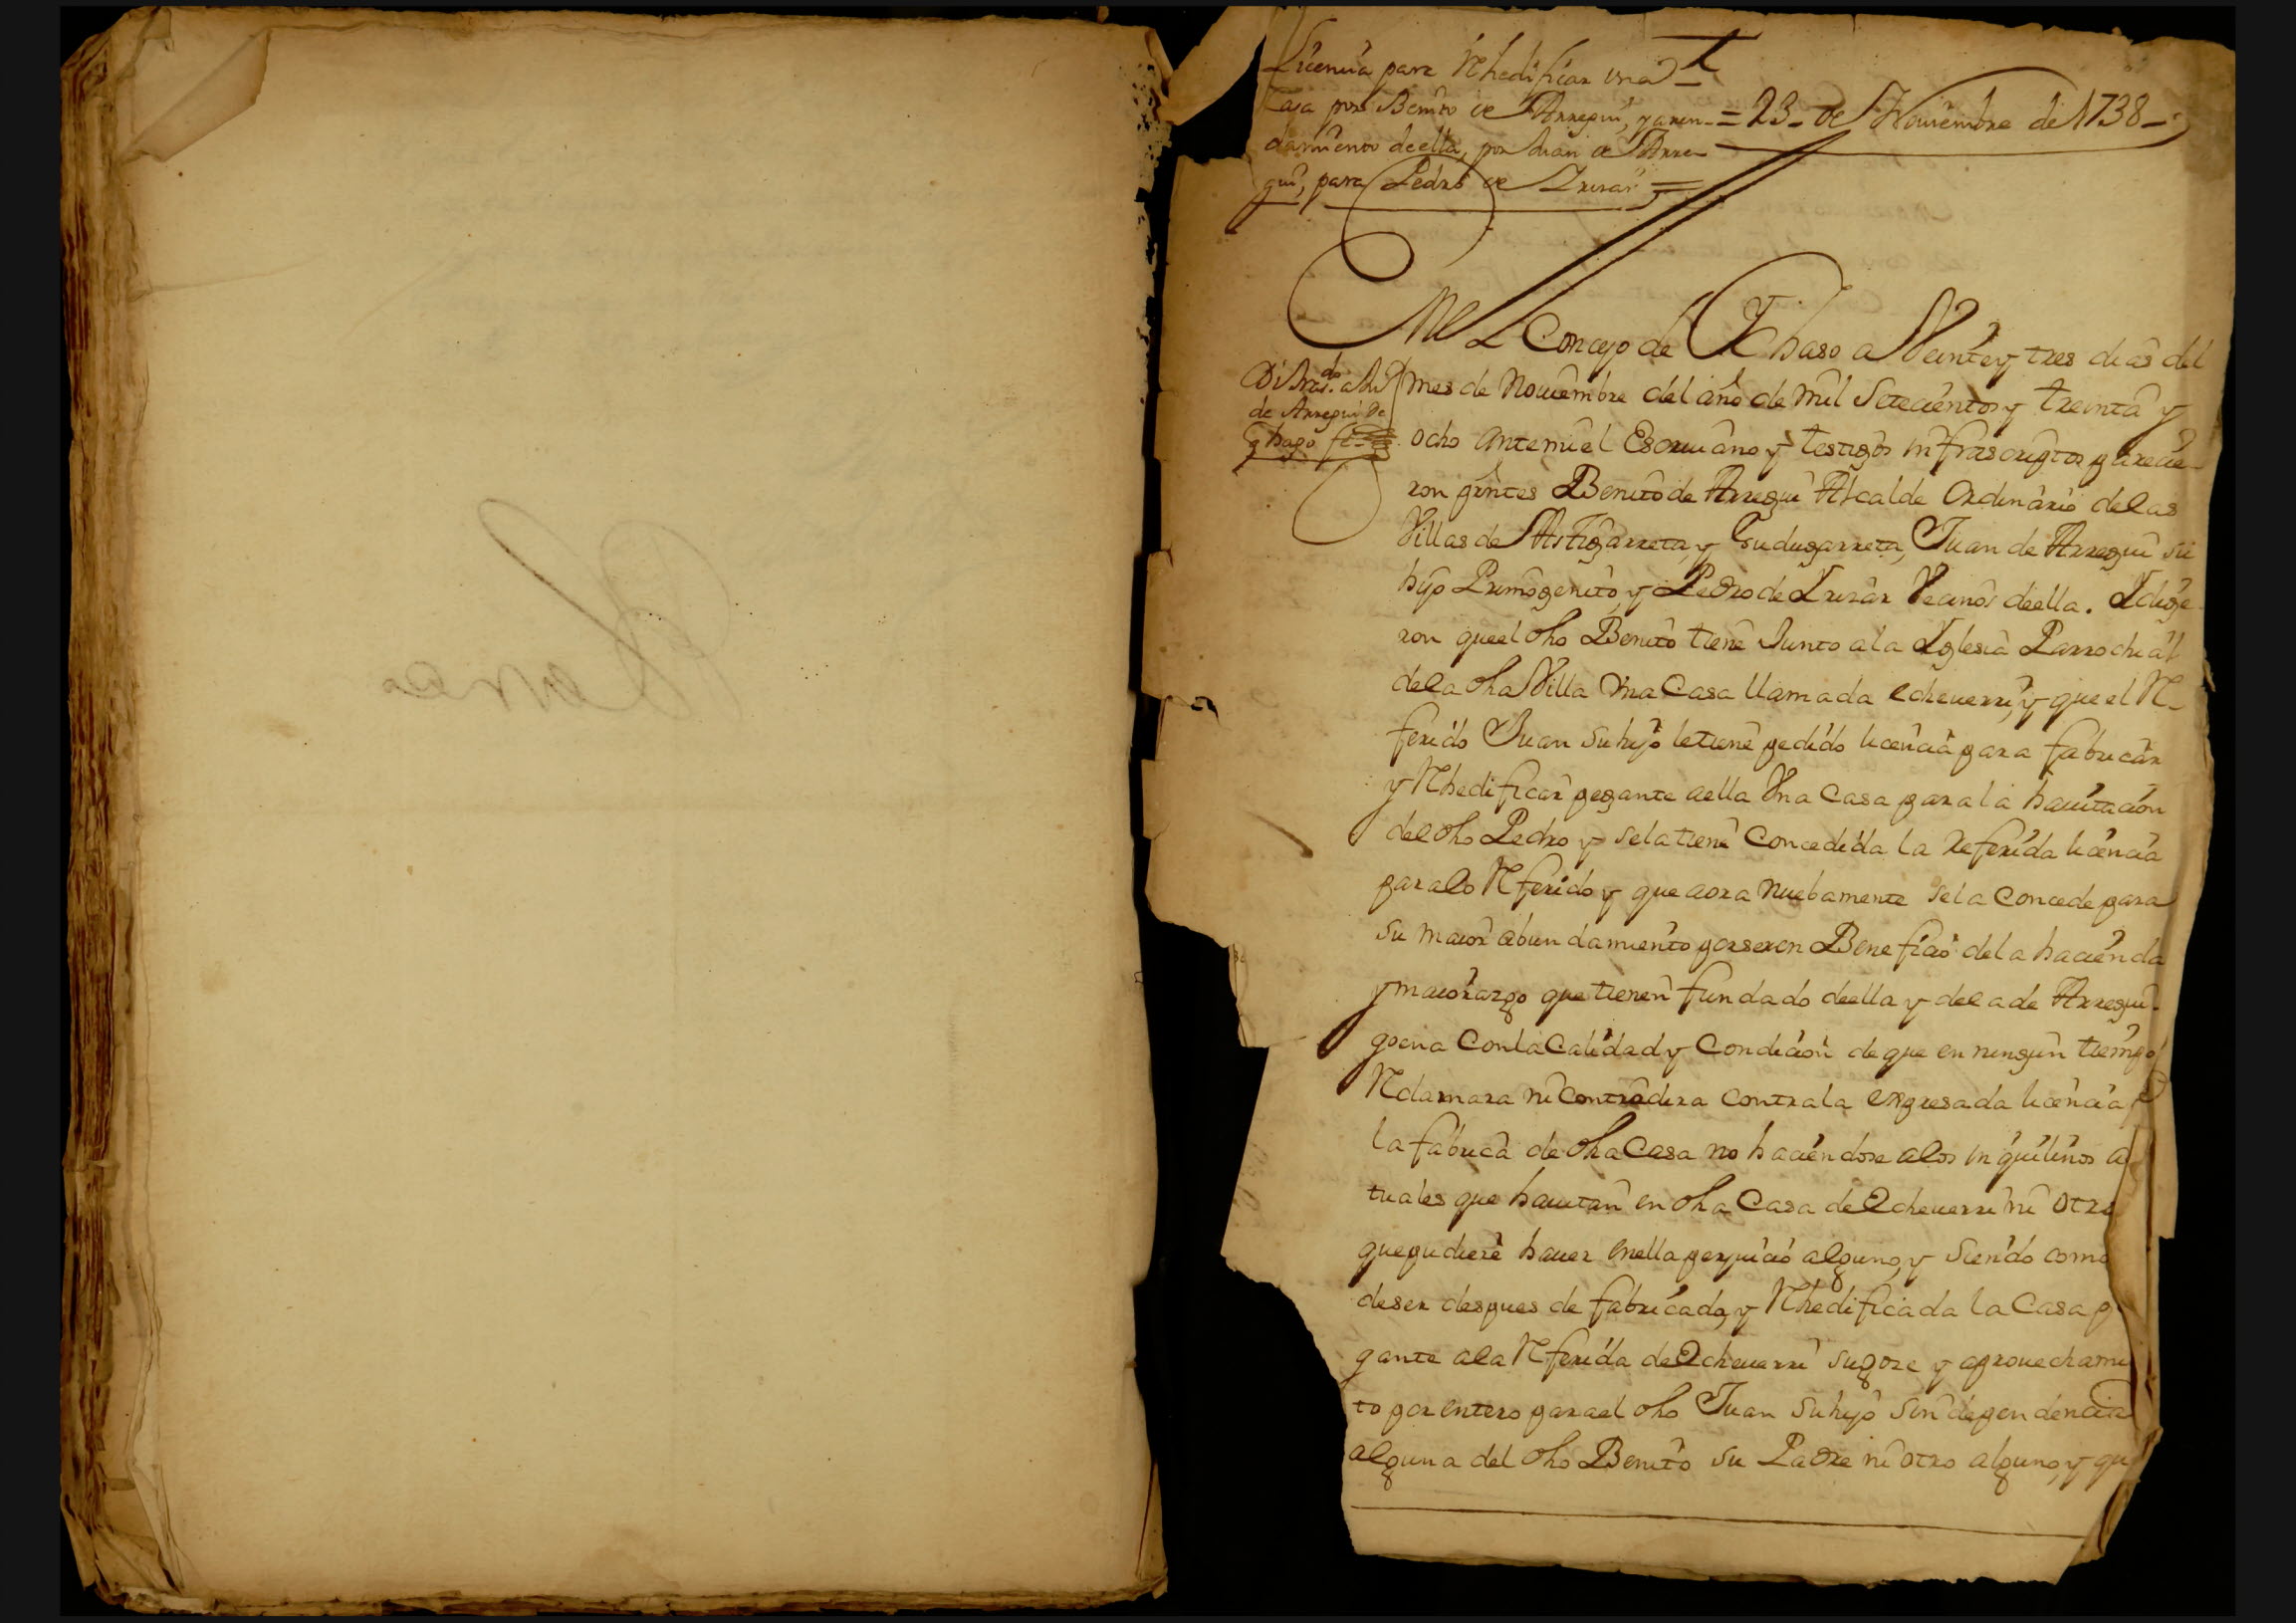 Licencia para Rhedificar vna
Casa por Benito de Arregui, y aren-
damiento de ella, por Juan de Arre-
gui, para Pedro de Yrizar =
= 23 - de Nouiembre de 1738 -
En el Concejo de Ychaso a Veinte y tres dias del
mes de Nouiembre del año de mil Setecientos y treinta y
ocho ante mi el Escriuano y testigos infrascriptos parecie-
ron pntes Benito de Arregui Alcalde Ordinario de las
Villas de Astigarreta, y Gudugarreta, Juan de Arregui su
hijo Primogenito, y Pedro de Yrizar Vecinos de ella. Y dije-
ron que el dho Benito tiene Junto a la Yglesia Parrochial
de la dha Villa Vna Casa llamada echeuerri, y que el Re-
ferido Juan su hijo le tiene pedido licencia para fabricar
y Rhedificar pegante a ella Vna Casa para la hauitacion
del dho Pedro y se la tiene Concedida la referida licencia
para lo Referido y que aora nuebamente se la Concede para
su maior abundamiento por ser en Beneficio de la hacienda
y maiorazgo que tienen fundado de ella y de la de Arregui-
goena Con la Calidad y Condicion de que en ningun tiempo
Reclamara ni Contradira contra la expresada licencia
la fabrica de dha Casa no haciendose a los inquilinos a
tuales que hauitan en dha Casa de Echeuerri ni otro
que pudiere hauer en ella perjuicio alguno, y siendo como
de ser despues de fabricada, y Rhedificada la Casa p
gante a la Referida de Echeuerri su goze y aprouechami
to por entero para el dho Juan su hijo sin dependencia
alguna del dho Benito su Padre ni otro alguno, y qu